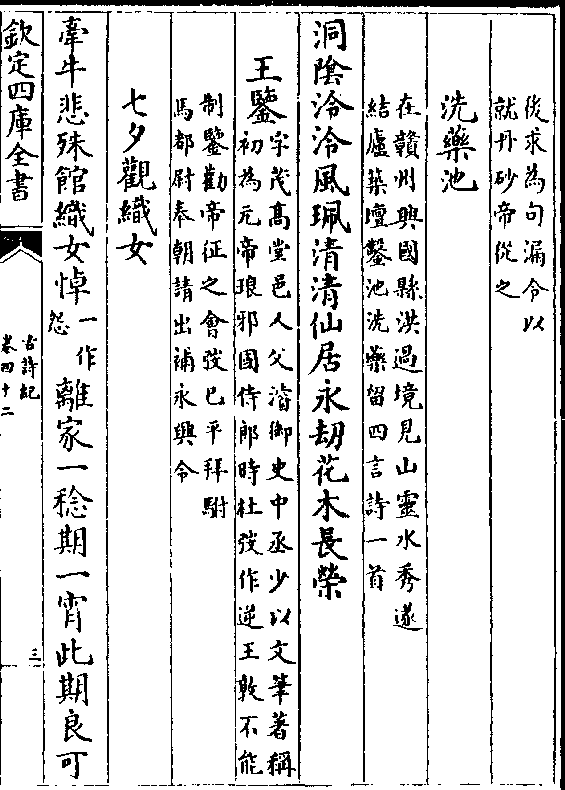 後求為句漏令以
就丹砂帝從之
洗藥池
在贛州興國縣洪過境見山靈水秀遂
結廬築壇鑿池洗藥留四言詩一首
洞陰泠泠風珮清清仙居永劫花木長榮
王鑒字茂高堂邑人父濬御史中丞少以文筆著稱
初為元帝琅邪國侍郎時杜弢作逆王敦不能
制鑒勸帝征之會弢已平拜駙
馬都尉奉朝請出補永興令
七夕觀織女
牽牛悲殊館織女悼一作怨離家一稔期一宵此期良可
欽定四庫全書
古詩紀
卷四十二
三